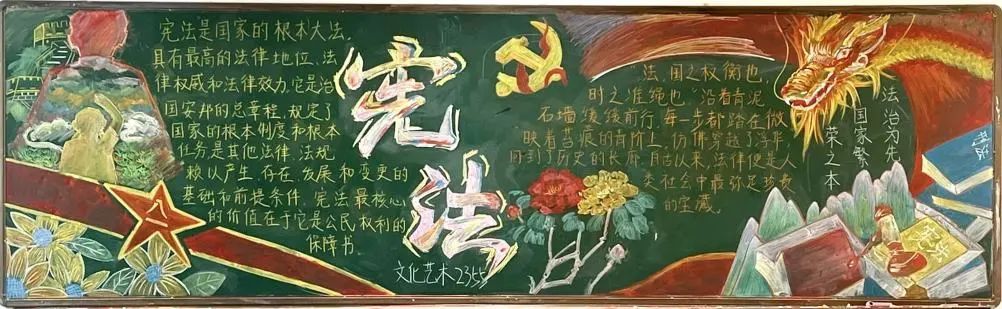 宪法是国家的根本大法.
具有最高的法律地位、法
律权威和法律效力.它是治
国安邦的总章程,规定了
国家的根本制度和根本
任务是其他法律、法规
赖以产生、存在、发展和变更的
基础和前提条件,宪法最核心
的价值在于它是公民权利的
保障书.
宪法
文化艺术2355
法,国之权衡也,
时之准绳也."沿着青泥
石墙缓缓前行,每一步都踏在微
映着苔痕的青阶上,仿佛穿越了浮华
回到了历史的长廊.自古以来,法律便是人
类社会中最弥足珍贵
的宝藏.
法治为先
国家繁
荣之本
八一
宪法